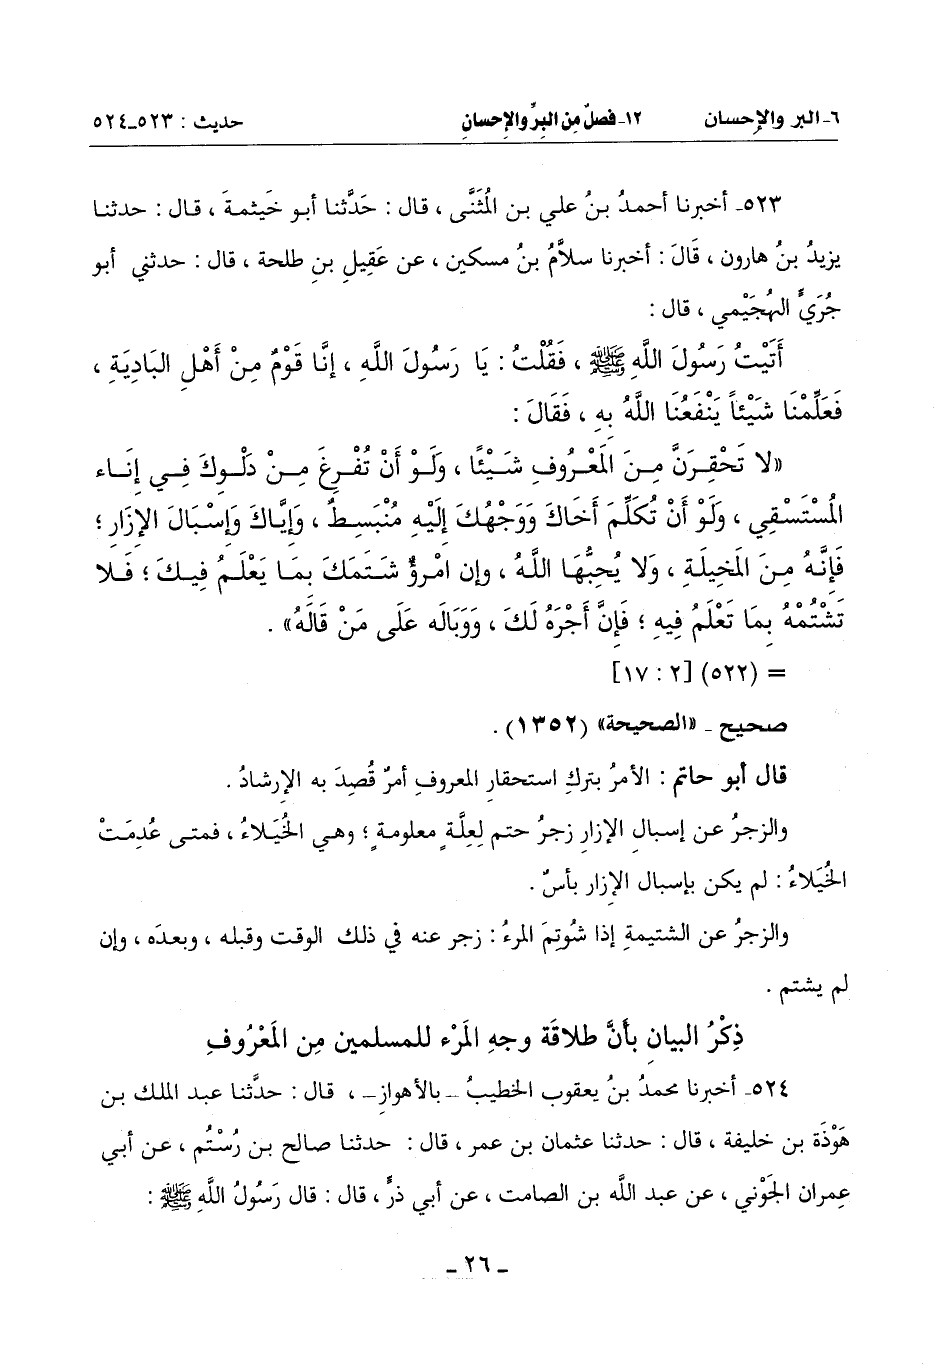 ٦ـ البر والإحسان ١٢ـ فصلٌ مِن البِرِّ والإحسانِ حديث : ٥٢٣ـ٥٢٤
٥٢٣ـ أخبرنا أحمدُ بنُ علي بن المُثَنَّى ، قال : حَدَّثنا أبو خَيثمةَ ، قال : حدثنا
يزيدُ بنُ هارون ، قَالَ : أخبرنا سلاَّمُ بنُ مسكين ، عن عَقِيلِ بنِ طلحة ، قال : حدثني أبو
جُرَيٍّ الهُجَيْمي ، قال :
أَتَيْتُ رَسُولَ اللَّهِ ﷺ ، فَقُلْتُ : يَا رَسُولَ اللَّهِ ، إنَّا قَوْمٌ مِنْ أَهْلِ البَادِيَةِ ،
فَعَلِّمْنَا شَيْئاً يَنْفَعُنَا اللَّهُ بِهِ ، فَقَالَ :
«لا تَحْقِرَنَّ مِنَ المَعْرُوفِ شَيْئًا ، وَلَوْ أَنْ تُفْرِغَ مِنْ دَلْوِكَ فِي إنَاء
المُسْتَسْقِي ، وَلَوْ أَنْ تُكَلِّمَ أَخَاكَ وَوَجْهُكَ إلَيْهِ مُنْبَسِطٌ ، وَإيَّاكَ وَإسْبَالَ الإزَارِ ؛
فَإنَّهُ مِنَ المَخِيلَةِ ، وَلا يُحِبُّهَا اللَّهُ ، وإن امْرؤٌ شَتَمَكَ بِمَا يَعْلَمُ فِيكَ ؛ فَلا
تَشْتُمْهُ بِمَا تَعْلَمُ فِيهِ ؛ فَإنَّ أَجْرَهُ لَكَ ، وَوَبَالَه عَلَى مَنْ قَالَهُ» .
= (٥٢٢) [٢ : ١٧]
صحيح ـ «الصحيحة» (١٣٥٢) .
قال أبو حاتم : الأمرُ بتركِ استحقارِ المعروفِ أمرٌ قُصِدَ به الإرشادُ .
والزجرُ عن إسبالِ الإزارِ زجرُ حتم لِعِلَّةٍ معلومةٍ ؛ وهي الخُيَلاءُ ، فمتى عُدِمَتْ
الخُيَلاءُ : لم يكن بإسبال الإزار بأسٌ .
والزجرُ عن الشتيمةِ إذا شُوتِمَ المرءُ : زجر عنه في ذلك الوقت وقبله ، وبعدَه ، وإن
لم يشتم .
ذِكْرُ البيان بأنَّ طلاقَة وجهِ المَرْء للمسلمين مِن المَعْرُوفِ
٥٢٤ـ أخبرنا محمدُ بنُ يعقوب الخطيبُ ـ بالأهوازِ ـ ، قال : حدَّثنا عبد الملك بن
هَوْذَة بن خليفة ، قال : حدثنا عثمان بن عمر ، قال : حدثنا صالح بن رُسْتُم ، عن أبي
عِمران الجَوْني ، عن عبد الله بن الصامت ، عن أبي ذرٍّ ، قال : قال رَسُولُ اللَّهِ ﷺ :
ـ ٢٦ ـ